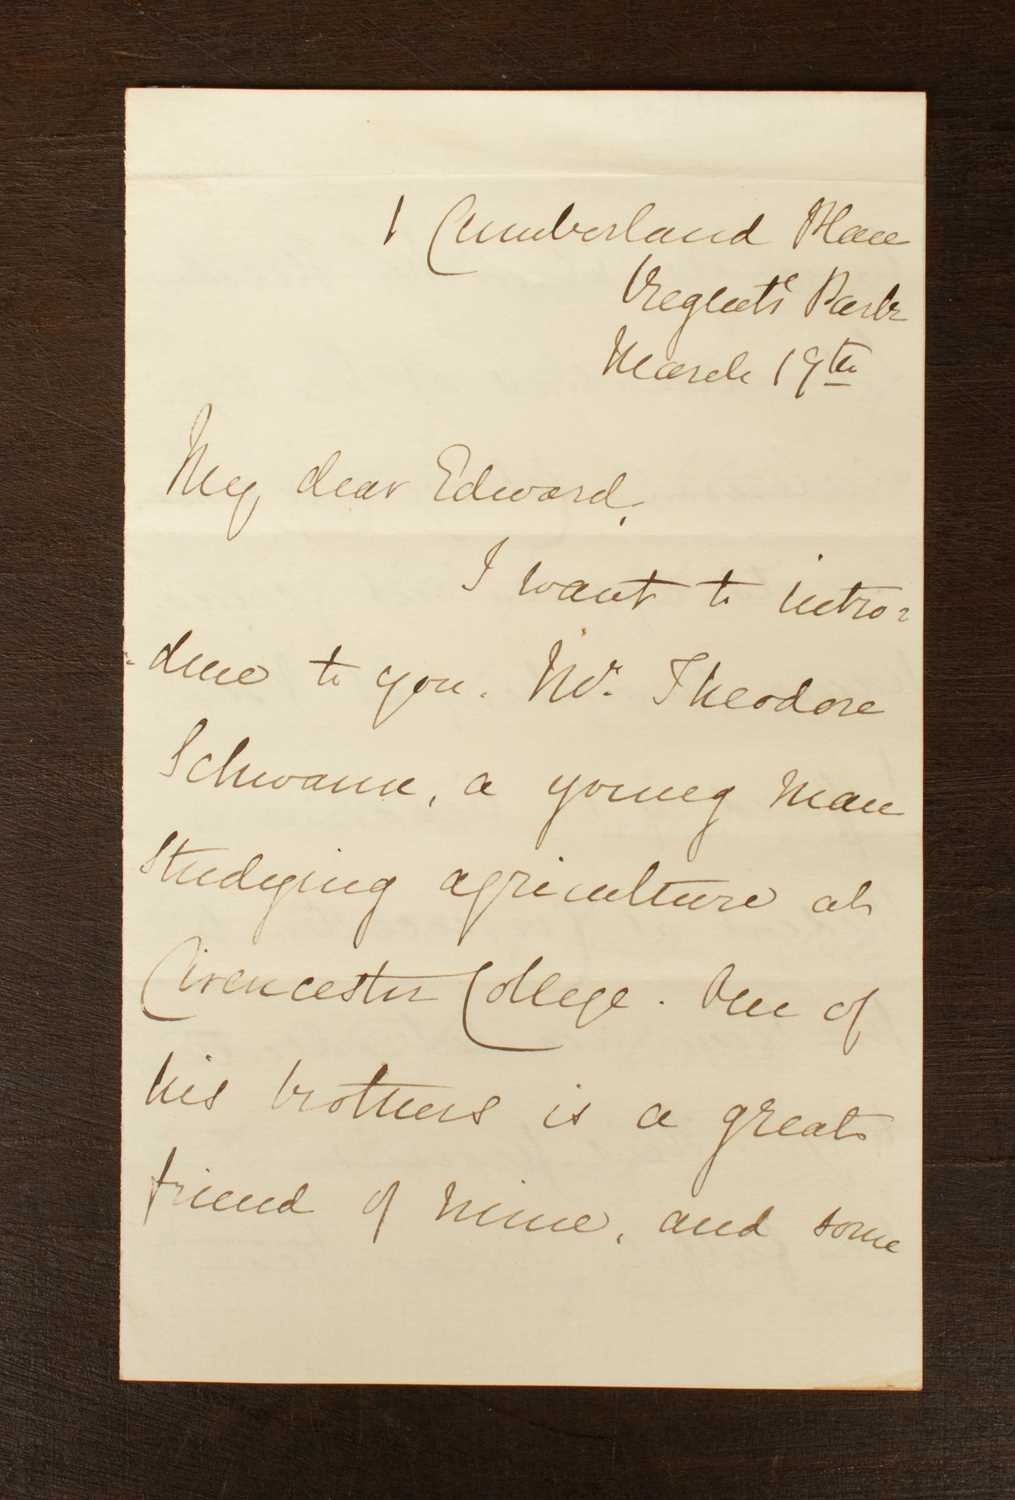 1 Cumberland Place
Regents Park
March 19th
My dear Edward,
I want to intro-
-duce to you. Mr. Theodore
Schwann, a young man
studying agriculture at
Cirencester College. One of
his brothers is a great
friend of mine, and some